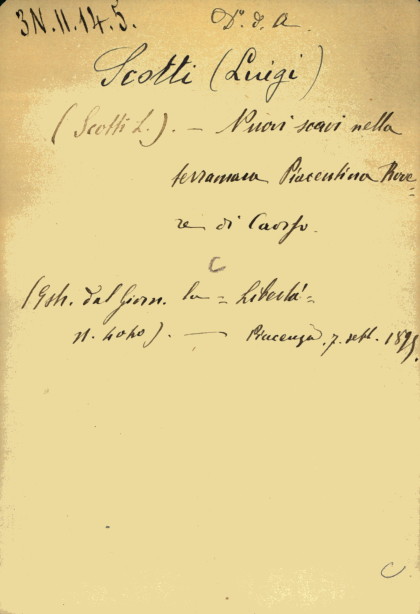 3N.11.14.5. D.º d. A.
Scotti (Luigi)
(Scotti L.). — Nuovi scavi nella
terramara Piacentina Rove=
re di Caorso.
C
(Estr. dal Giorn. la = Libertà =
n. 4040). — Piacenza, 7. sett. 1895.
C.